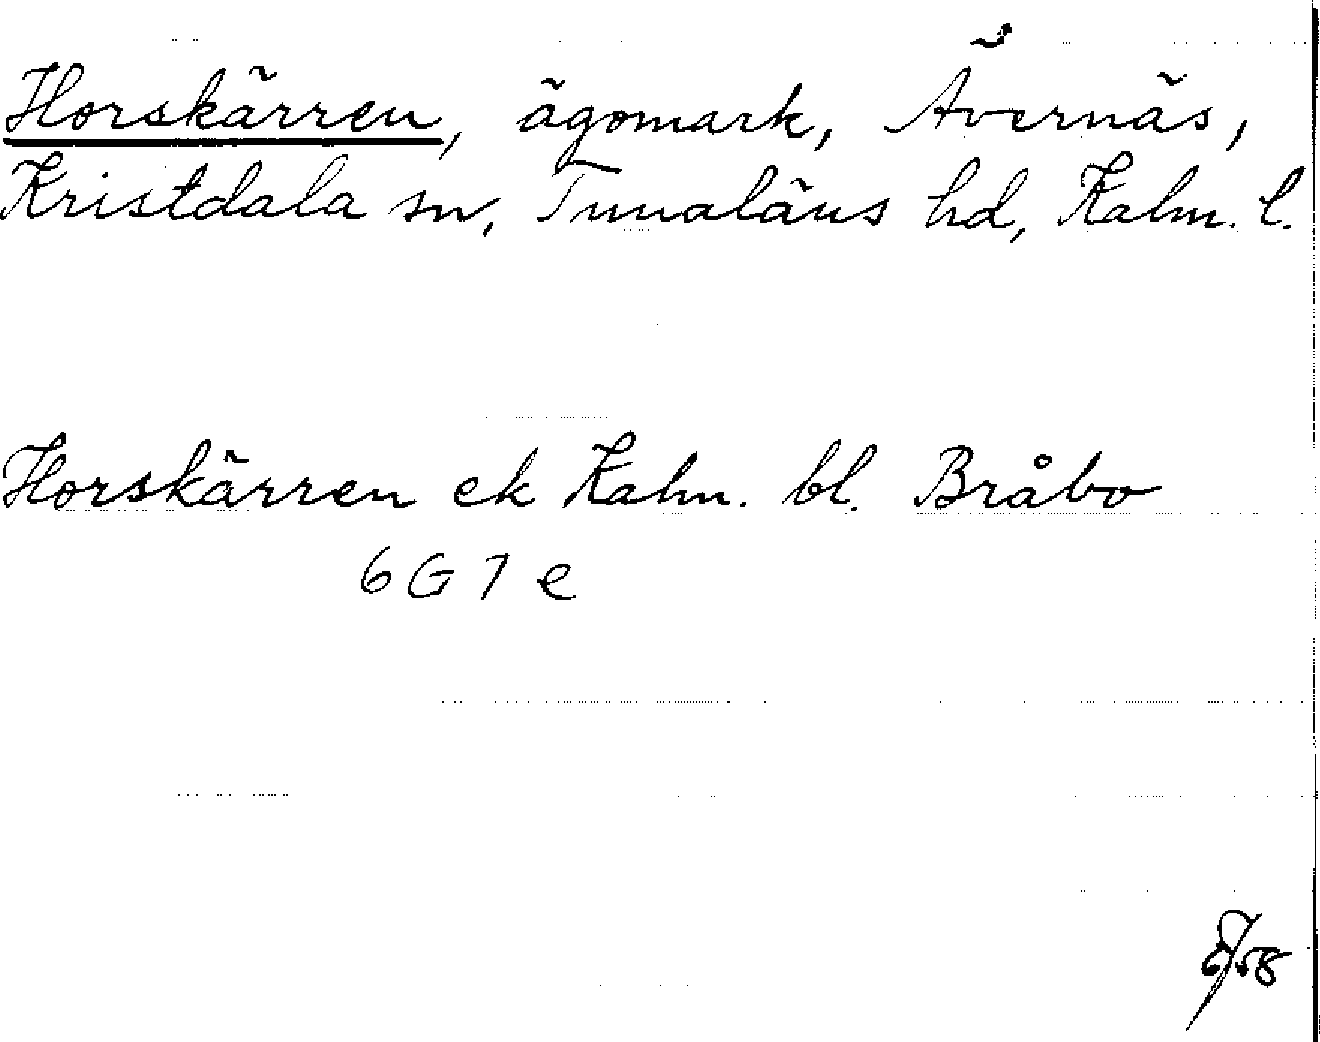 Horskärren, ägomark, Åvernäs,
Kristdala sn, Tunaläns hd, Kalm. l.
Horskärren ek Kalm. bl. Bråbo
6G7e